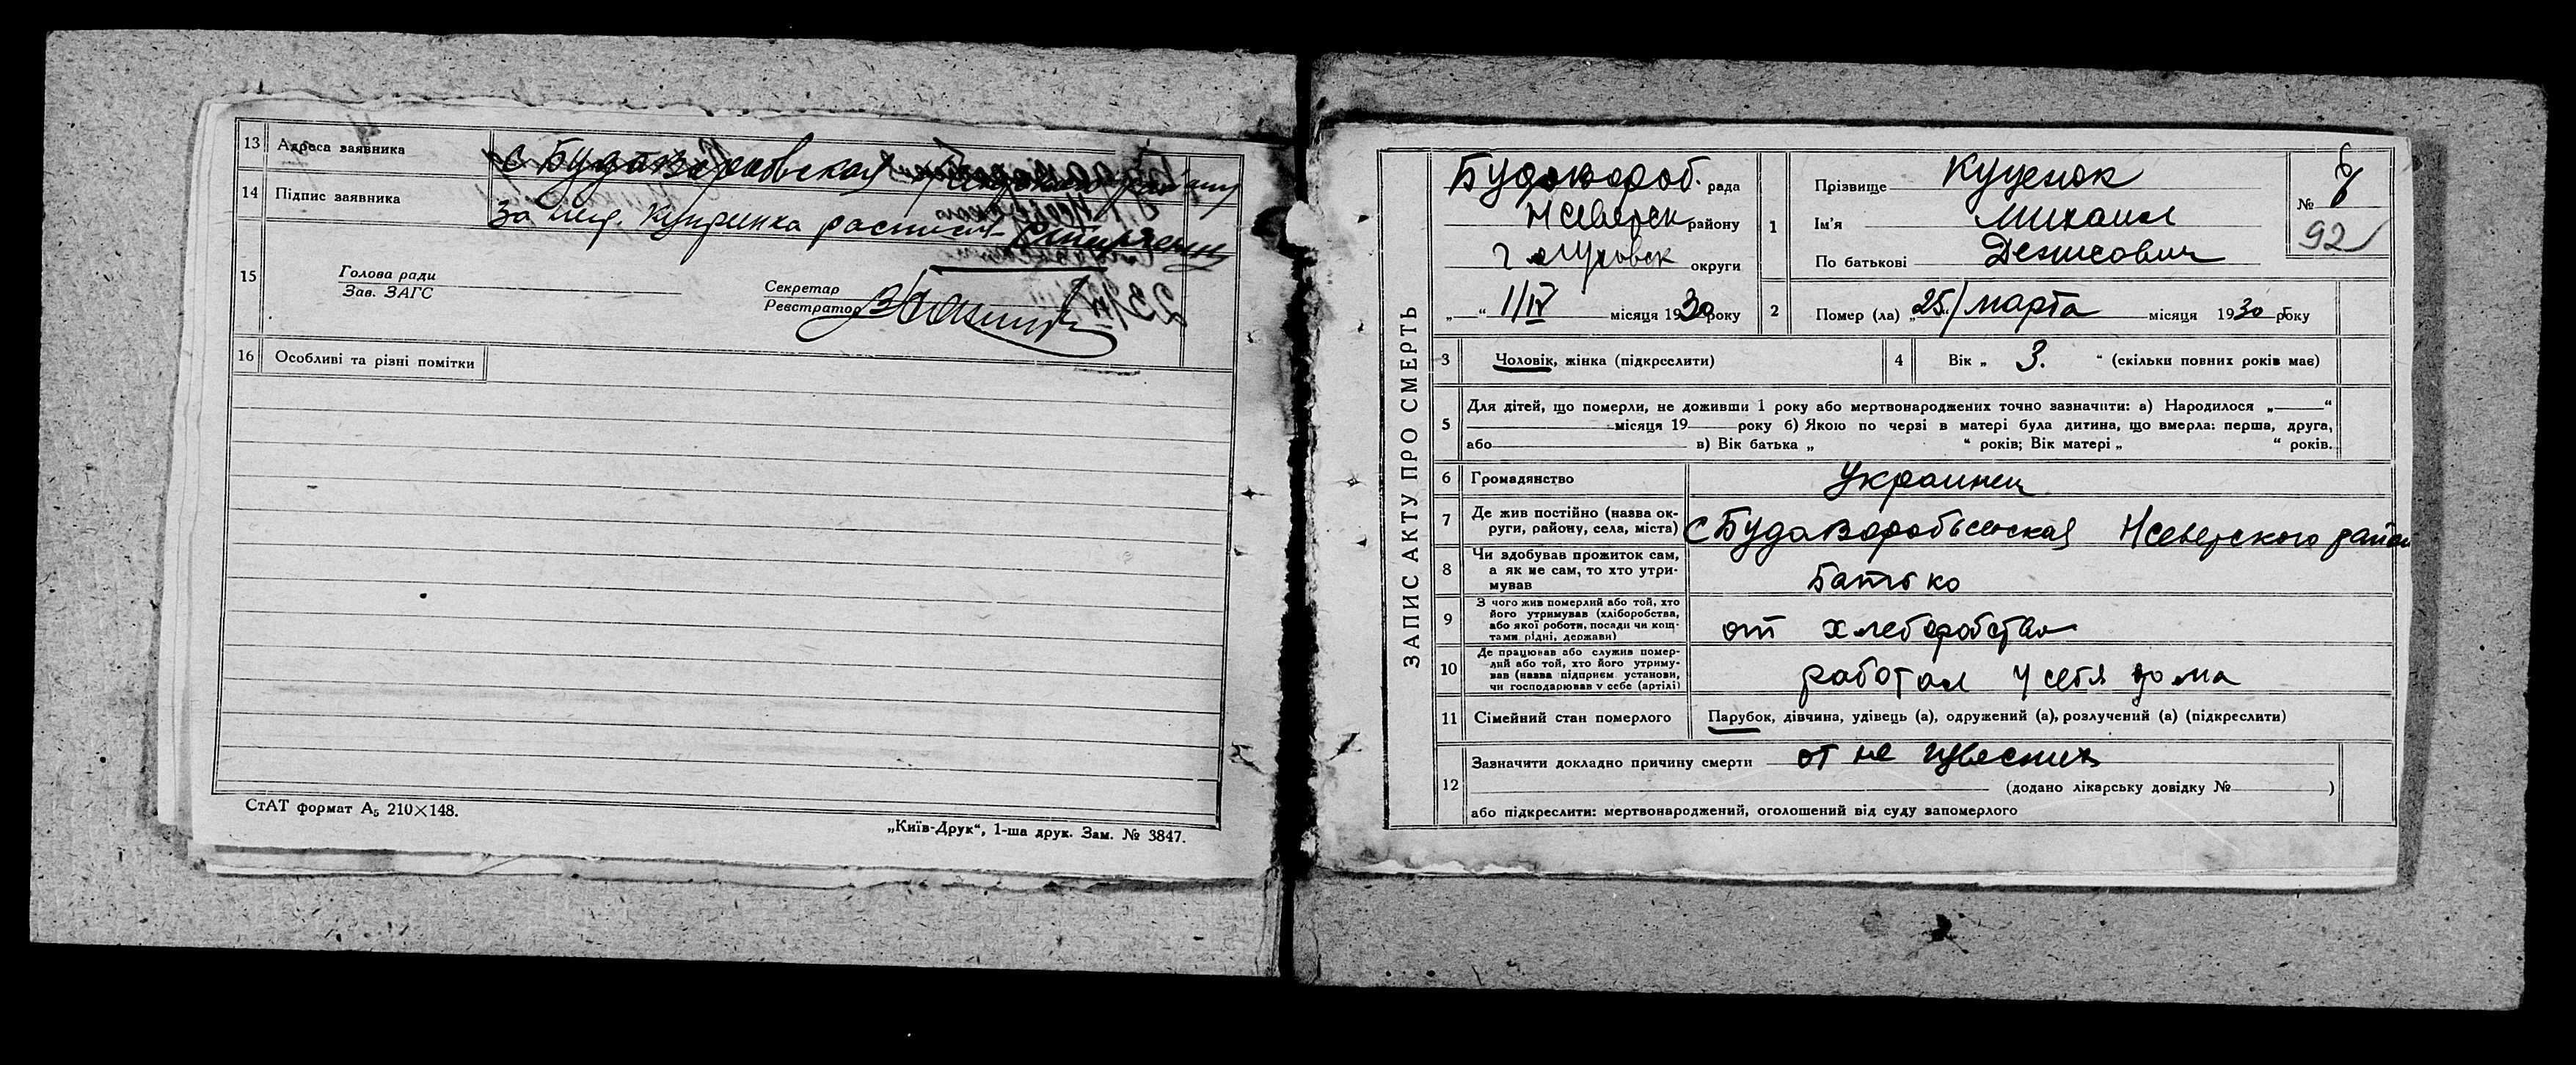 13 Адреса заявника с Будаворовская
14 Підпис заявника за неgr. Купринка расписался
15 Голова ради
Зав. ЗАГС
Секретар
Реєстратор
16 Особливі та різні помітки
СтАТ формат А5 210×148.
„Київ-Друк“, 1-ша друк. Зам. № 3847.
ЗАПИС АКТУ ПРО СМЕРТЬ
Будовороб. рада
Н Северск району
Глуховск округи
„ “ 1/IV місяця 1930 року
1 Прізвище Куценок
Ім'я Михаил
По батькові Денисович
№ 8
92
2 Помер (ла) „25“/марта місяця 1930 року
3 Чоловік, жінка (підкреслити)
4 Вік „ 3. “ (скільки повних років має)
5 Для дітей, що померли, не доживши 1 року або мертвонароджених точно зазначити: а) Народилося „ “
місяця 19 року б) Якою по черзі в матері була дитина, що вмерла: перша, друга,
або в) Вік батька „ “ років; Вік матері „ “ років.
6 Громадянство Украинец
7 Де жив постійно (назва ок-
руги, району, села, міста) с Будаворобьевская Н Северского район
8 Чи здобував прожиток сам,
а як не сам, то хто утри-
мував Батько
9 З чого жив померлий або той, хто
його утримував (хліборобства,
або якої роботи, посади чи кош-
тами рідні, держави) от хлеборобства
10 Де працював або служив помер-
лий або той, хто його утриму-
вав (назва підприєм установи,
чи господарював у себе (артілі) работал у себя дома
11 Сімейний стан померлого Парубок, дівчина, удівець (а), одружений (а), розлучений (а) (підкреслити)
12 Зазначити докладно причину смерти от не извесних
(додано лікарську довідку № )
або підкреслити: мертвонароджений, оголошений від суду запомерлого